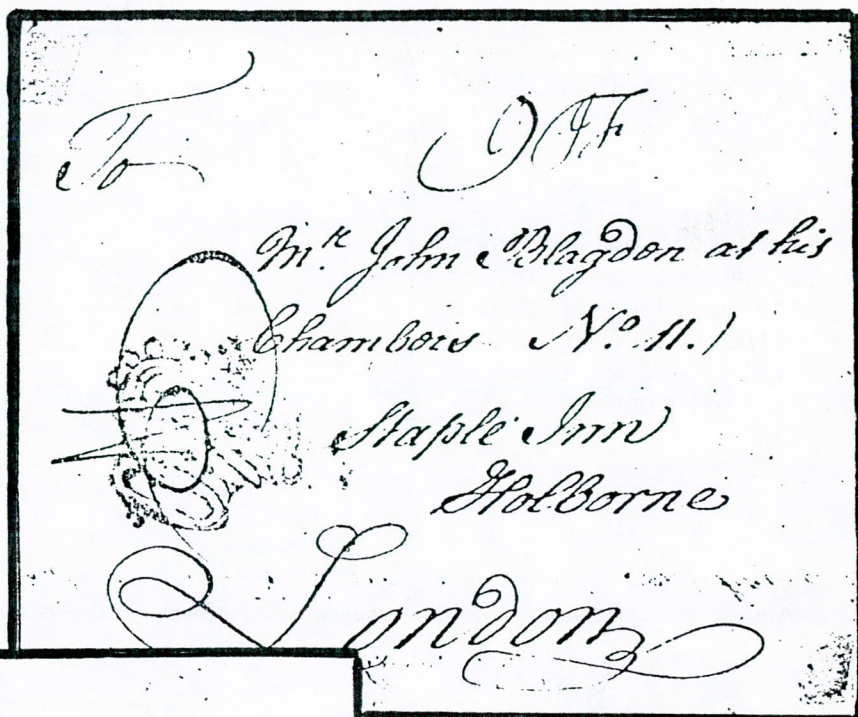 To
Mr. John Blagdon at his
Chambers No. 11.
Staple Inn
Holborne
London